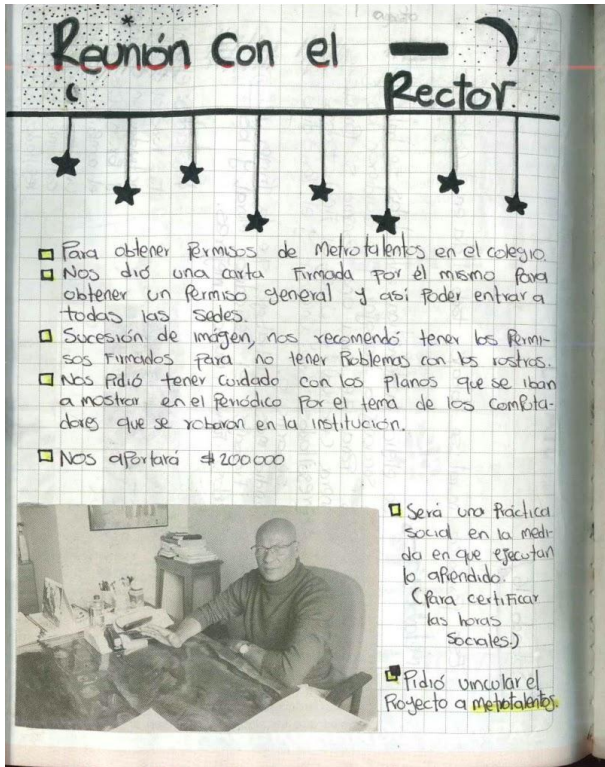 agosto
Reunión Con el
Rector.
Para obtener Permisos de Metrotalentos en el colegio.
Nos dió una carta Firmada Por él mismo Para
obtener un Permiso general y así Poder entrar a
todas las sedes.
Sucesión de imágen, nos recomendó tener los Permi-
sos Firmados Para no tener Problemas con los rostros.
Nos Pidió tener cuidado con los planos que se iban
a mostrar en el Periódico Por el tema de los Computa-
dores que se robaron en la institución.
Nos aportará $200000
Será una Práctica
social en la medi-
da en que ejecutan
lo aprendido.
(Para certificar
las horas
Sociales.)
Pidió vincular el
Proyecto a metrotalentos.